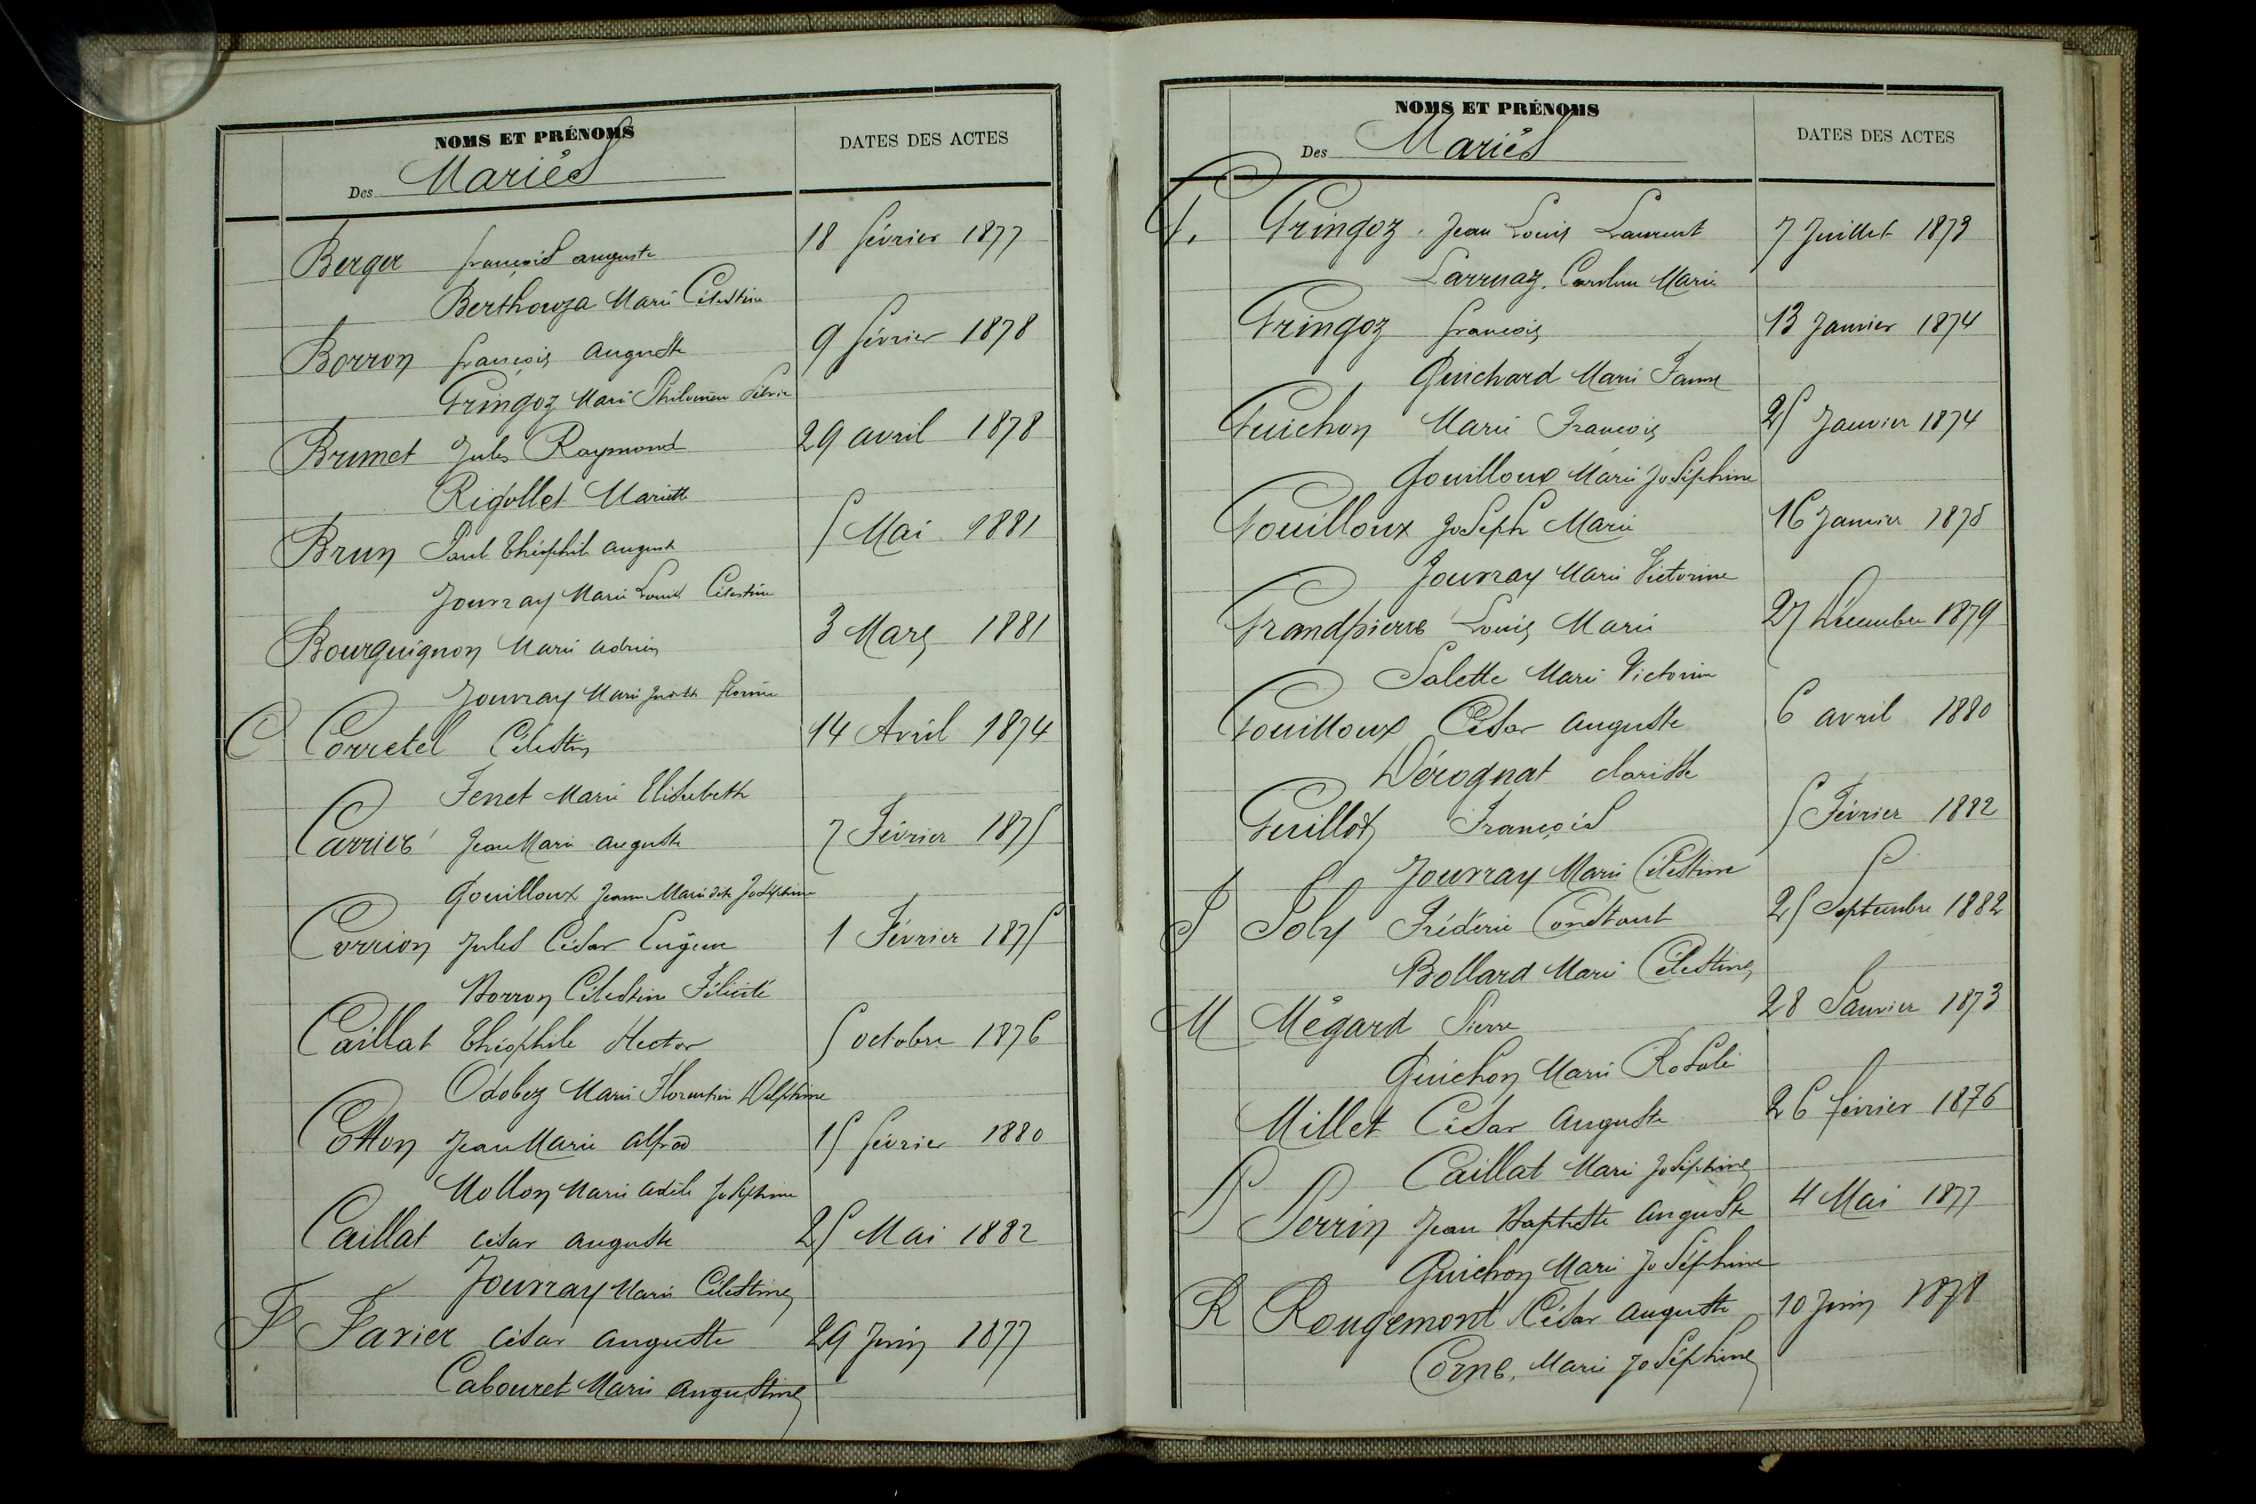 NOMS ET PRÉNOMS
DATES DES ACTES
Des Mariés
Berger françois auguste 18 février 1877
Berthouza Marie Célestine
Borron françois auguste 9 février 1878
Gringoz Marie Philomène
Brumet Jules Raymond 29 avril 1878
Rigollet Mariette
Brun Paul théophile auguste 5 Mai 1881
Jourray Marie Louise Célestine
Bourguignon Marie adrien 3 Mars 1881
Jourray Marie Judith florine
C Corretel Célestin 14 Avril 1874
Fenet Marie Elisabeth
Carrier Jean Marie auguste 7 Février 1875
Gouilloux Jeanne Marie dite Joséphine
Corrion Jules César Eugène 1 Février 1875
Borron Célestine Félicité
Caillat théophile Hector 5 octobre 1876
Odobez Marie Florentine Delphine
Cotton Jean Marie alfred 15 février 1880
Mollon Marie adèle Joséphine
Caillat César auguste 25 Mai 1882
Jourray Marie Célestine
F Favier César auguste 29 Juin 1877
Cabouret Marie augustine
NOMS ET PRÉNOMS
DATES DES ACTES
Des Mariés
G. Gringoz. Jean Louis Laurent 7 Juillet 1873
Larruaz. Caroline Marie
Gringoz françois 13 Janvier 1874
Guichard Marie Fanny
Guichon Marie François 25 Janvier 1874
Gouilloux Marie Joséphine
Gouilloux Joseph Marie 16 Janvier 1878
Jourray Marie Victorine
Grandpierre Louis Marie 27 Décembre 1879
Salette Marie Victorine
Gouilloux César auguste 6 avril 1880
Dérognat clarisse
Guillot François 5 Février 1882
Jourray Marie Célestine
J Joly Frédéric Constant 25 Septembre 1882
Bollard Marie Célestine
M Mégard Pierre 28 Janvier 1873
Guichon Marie Rosalie
Millet César auguste 26 février 1876
Caillat Marie Joséphine
P Perrin Jean Baptiste auguste 4 Mai 1877
Guichon Marie Joséphine
R Rougemont César auguste 10 Juin 1878
Corne, Marie Joséphine